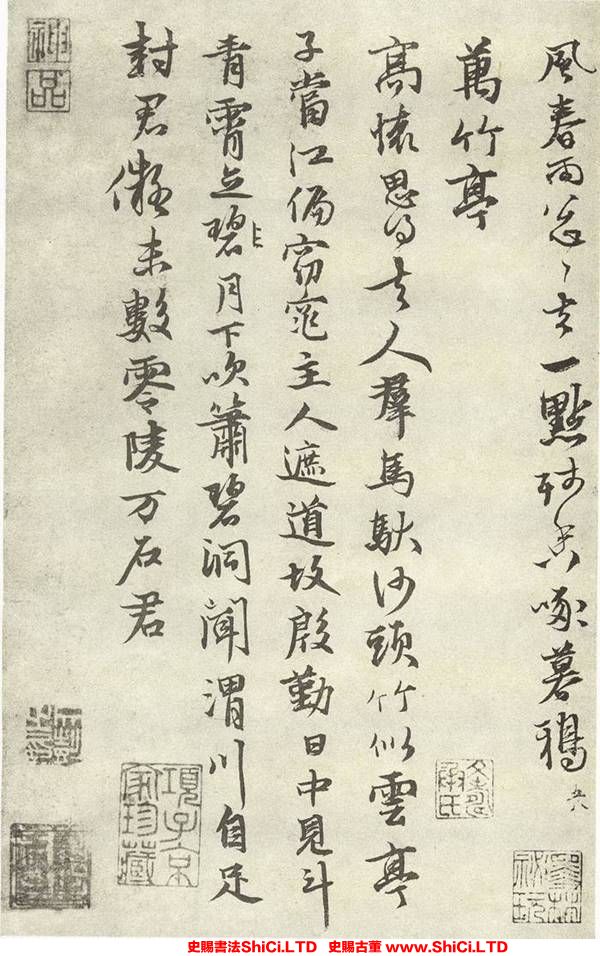 風春雨忽〻去一點殘香啄暮鴉
萬竹亭
高懷思得去人羣馬馱沙頭竹似雲亭
子當江偏窈窕主人遮道故殷勤日中見斗
青霄立碧月下吹簫碧洞聞渭川自足
封君儗未數零陵万石君
神品
項子京家珍藏
史賜書法ShiCi.LTD 史賜古董 www.ShiCi.LTD